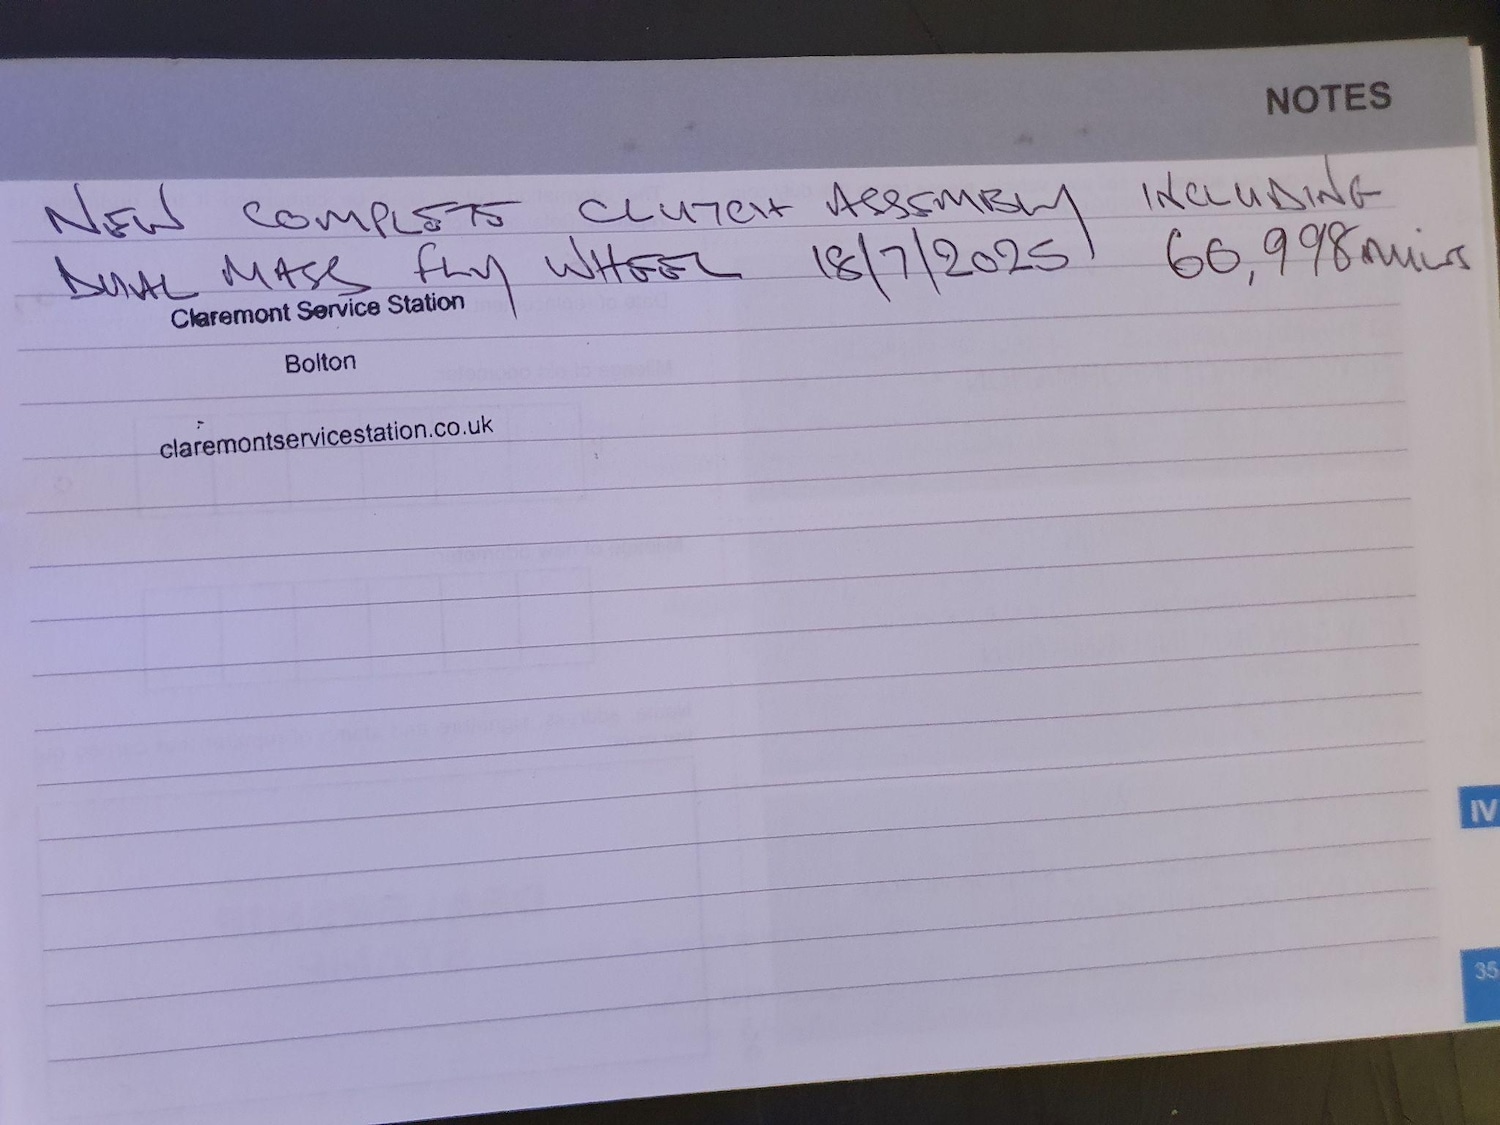 NOTES
NEW COMPLETE CLUTCH ASSEMBLY INCLUDING
DUAL MASS FLY WHEEL 18/7/2025 60,998 miles
Claremont Service Station
Bolton
claremontservicestation.co.uk
IV
35